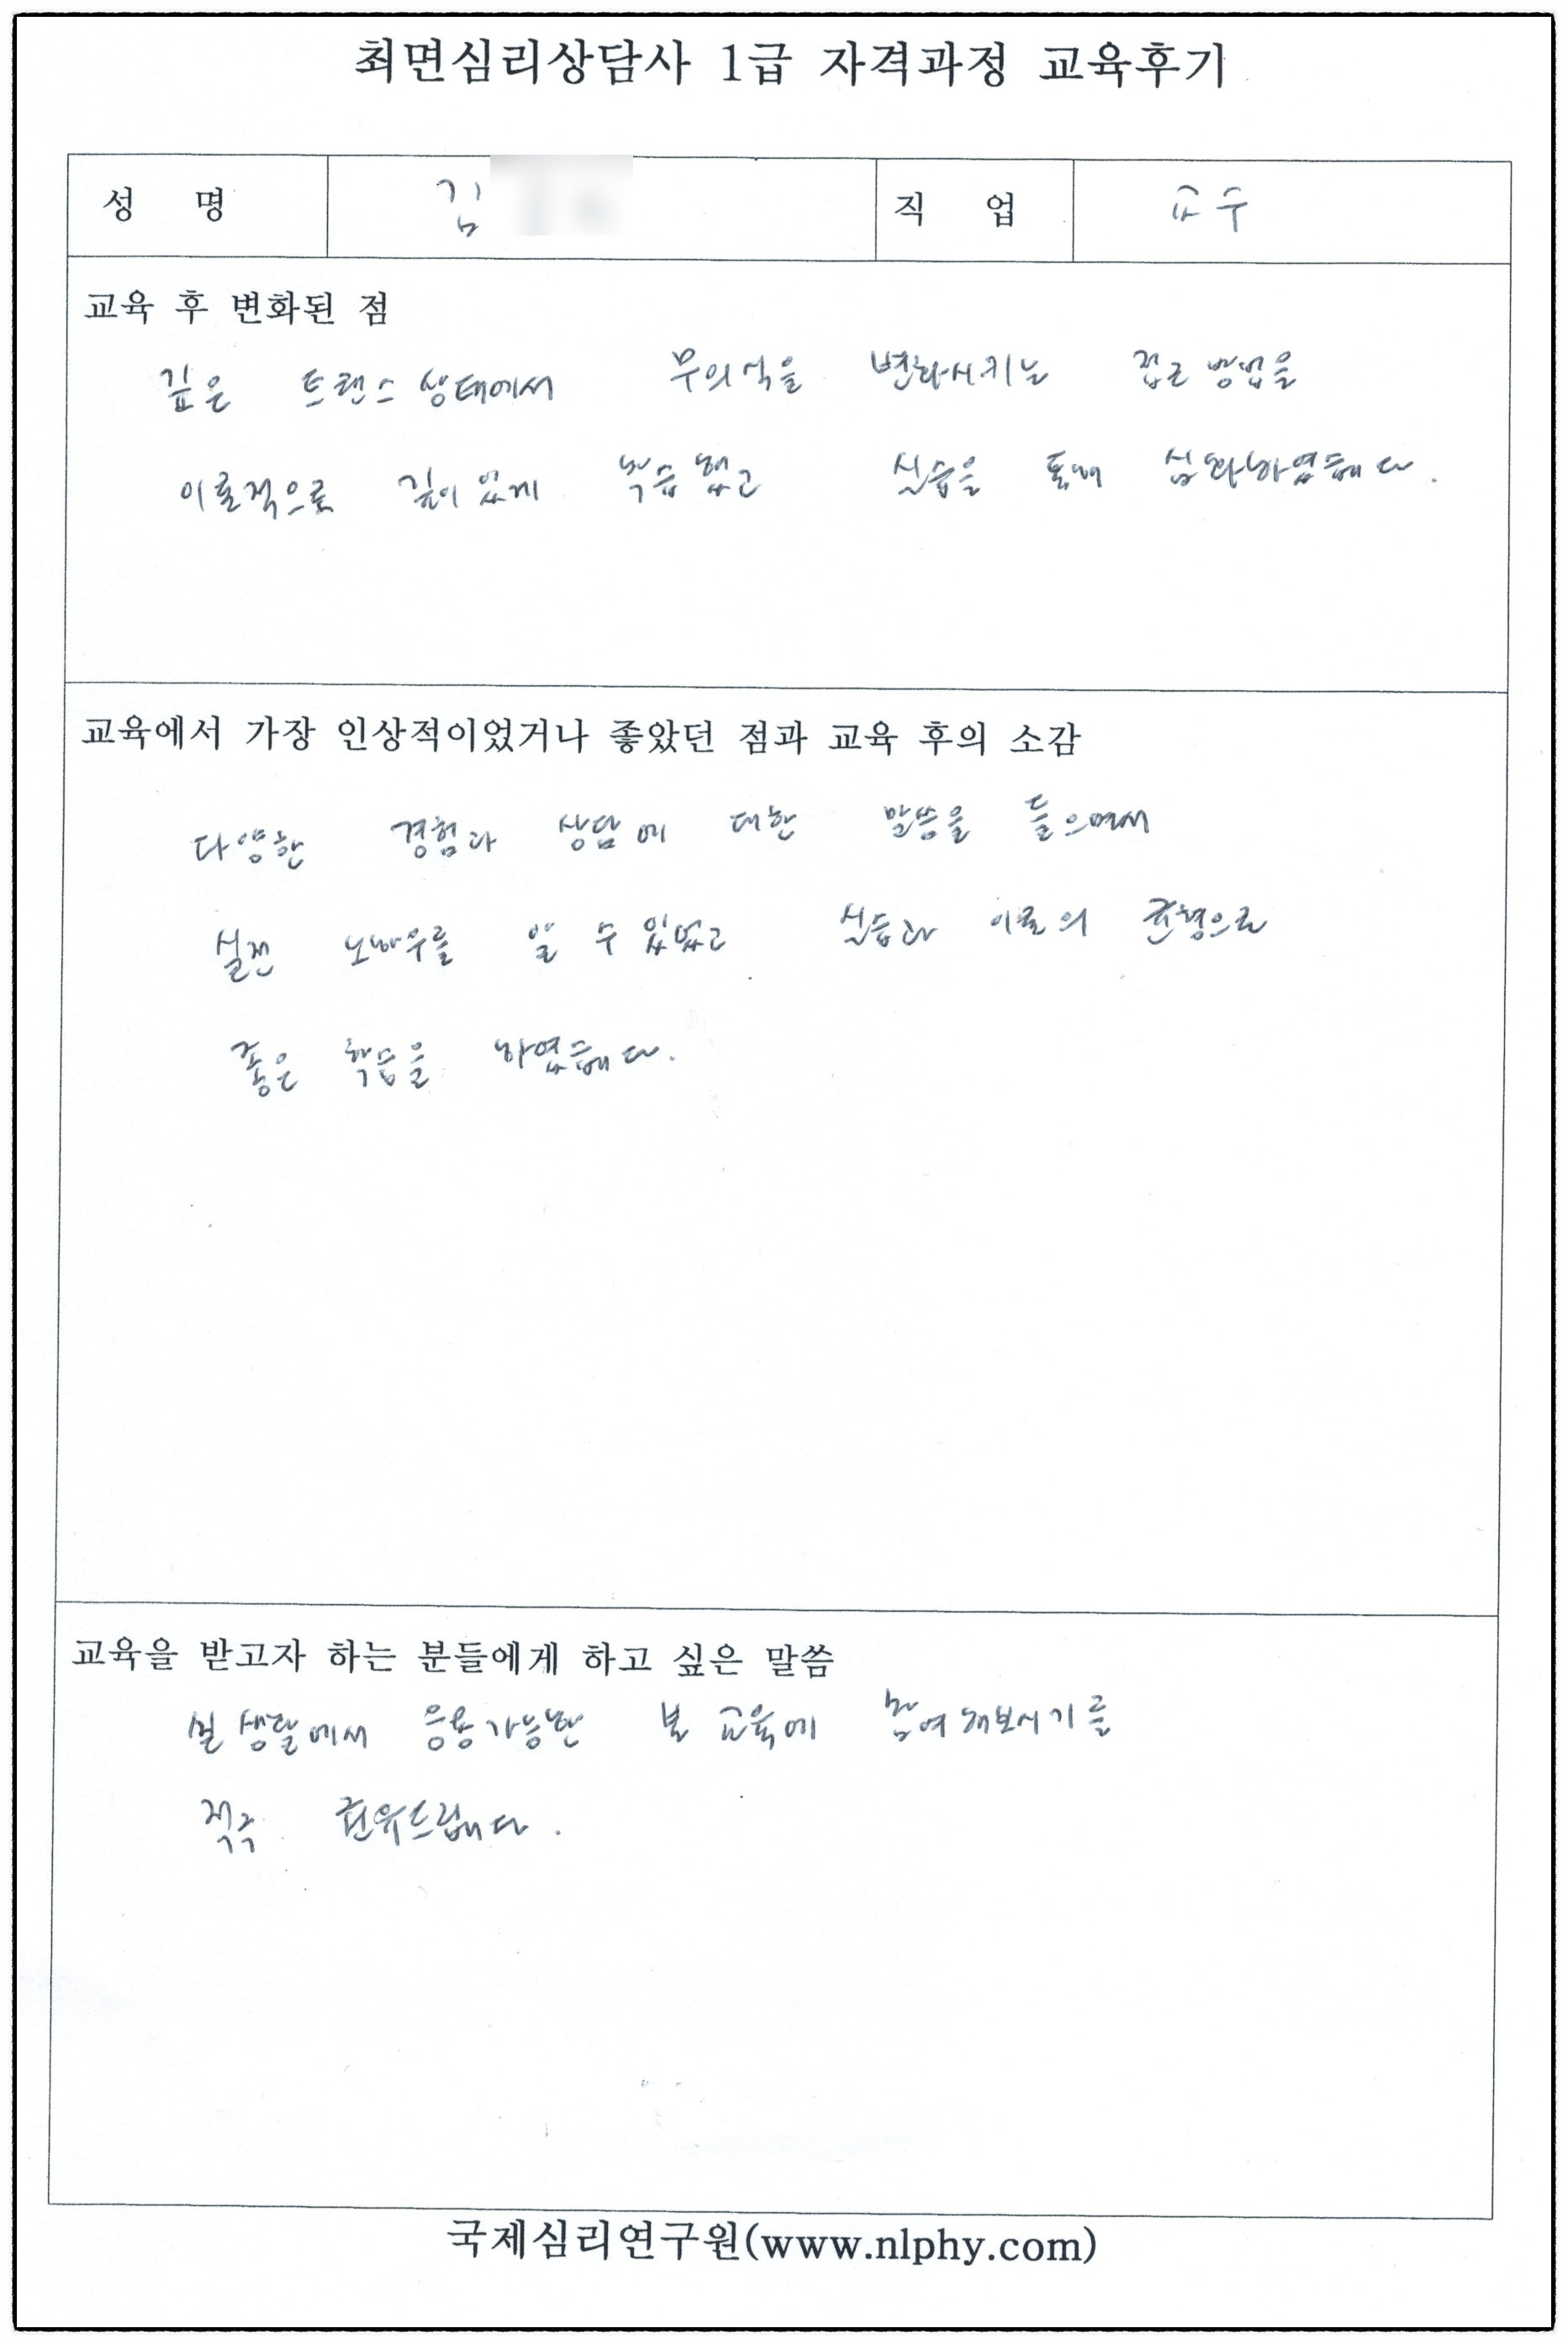 최면심리상담사 1급 자격과정 교육후기
성 명 김 직 업 교수
교육 후 변화된 점
깊은 트랜스 상태에서 무의식을 변화시키는 접근 방법을
이론적으로 깊이 있게 학습했고 실습을 통해 심화하였습니다.
교육에서 가장 인상적이었거나 좋았던 점과 교육 후의 소감
다양한 경험과 상담에 대한 말씀을 들으며서
실전 노하우를 알 수 있었고 실습과 이론의 균형으로
좋은 학습을 하였습니다.
교육을 받고자 하는 분들에게 하고 싶은 말씀
실생활에서 응용가능한 본 교육에 참여해보시기를
적극 권유드립니다.
국제심리연구원(www.nlphy.com)